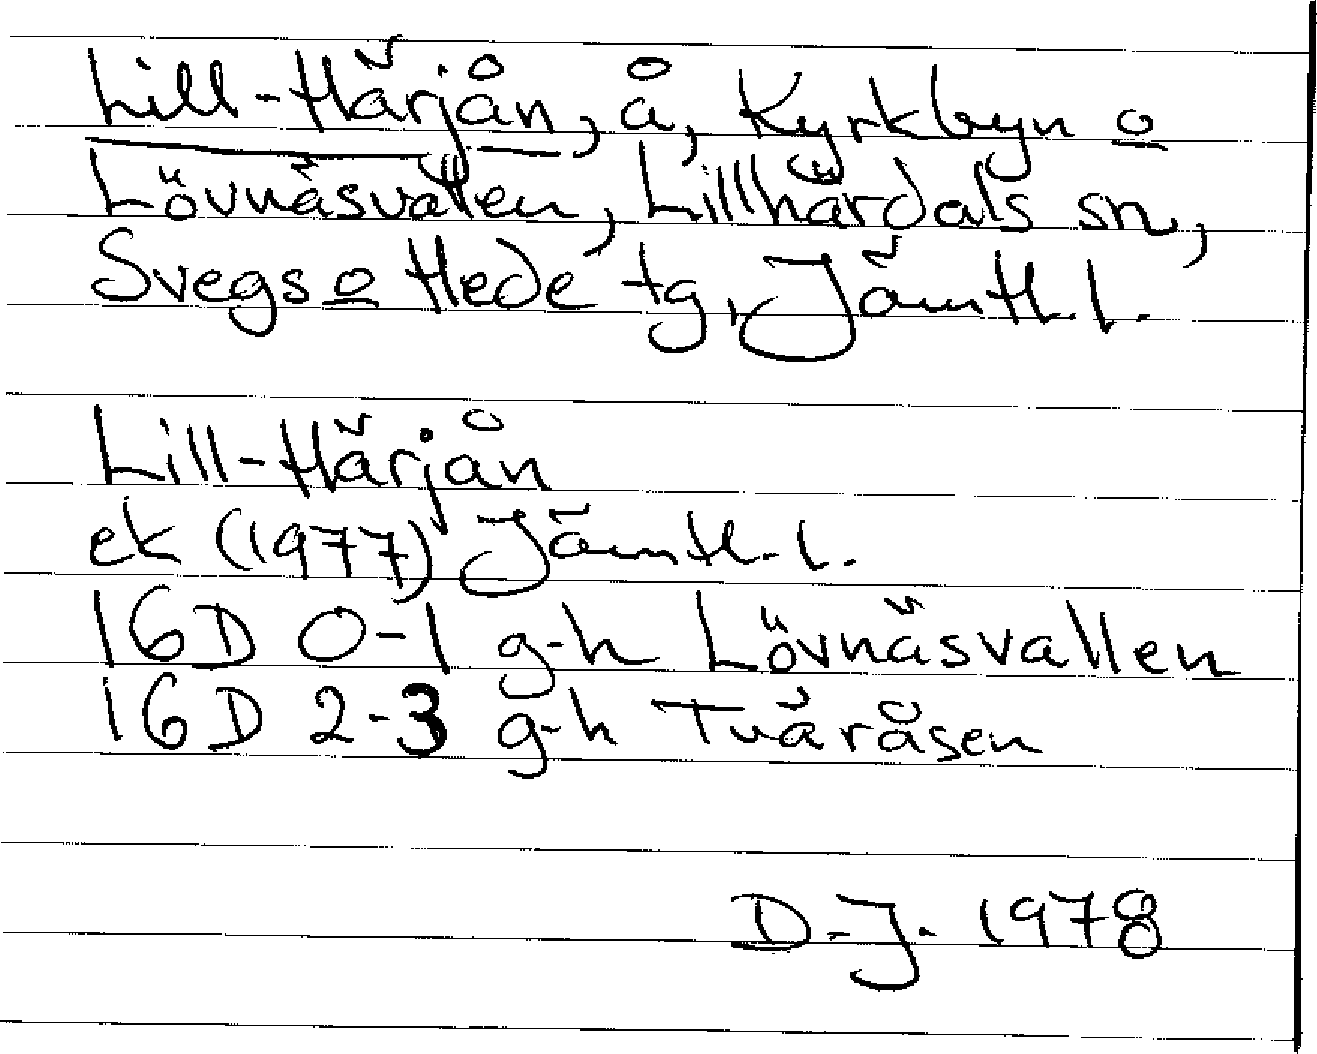 Lill-Härjån, å, Kyrkbyn o
Lövnäsvallen, Lillhärdals sn,
Svegs o Hede tg, Jämtl. l.
Lill-Härjån
ek (1977) Jämtl. l.
16D 0-1 g-h Lövnäsvallen
16D 2-3 g-h Tväråsen
D.J. 1978